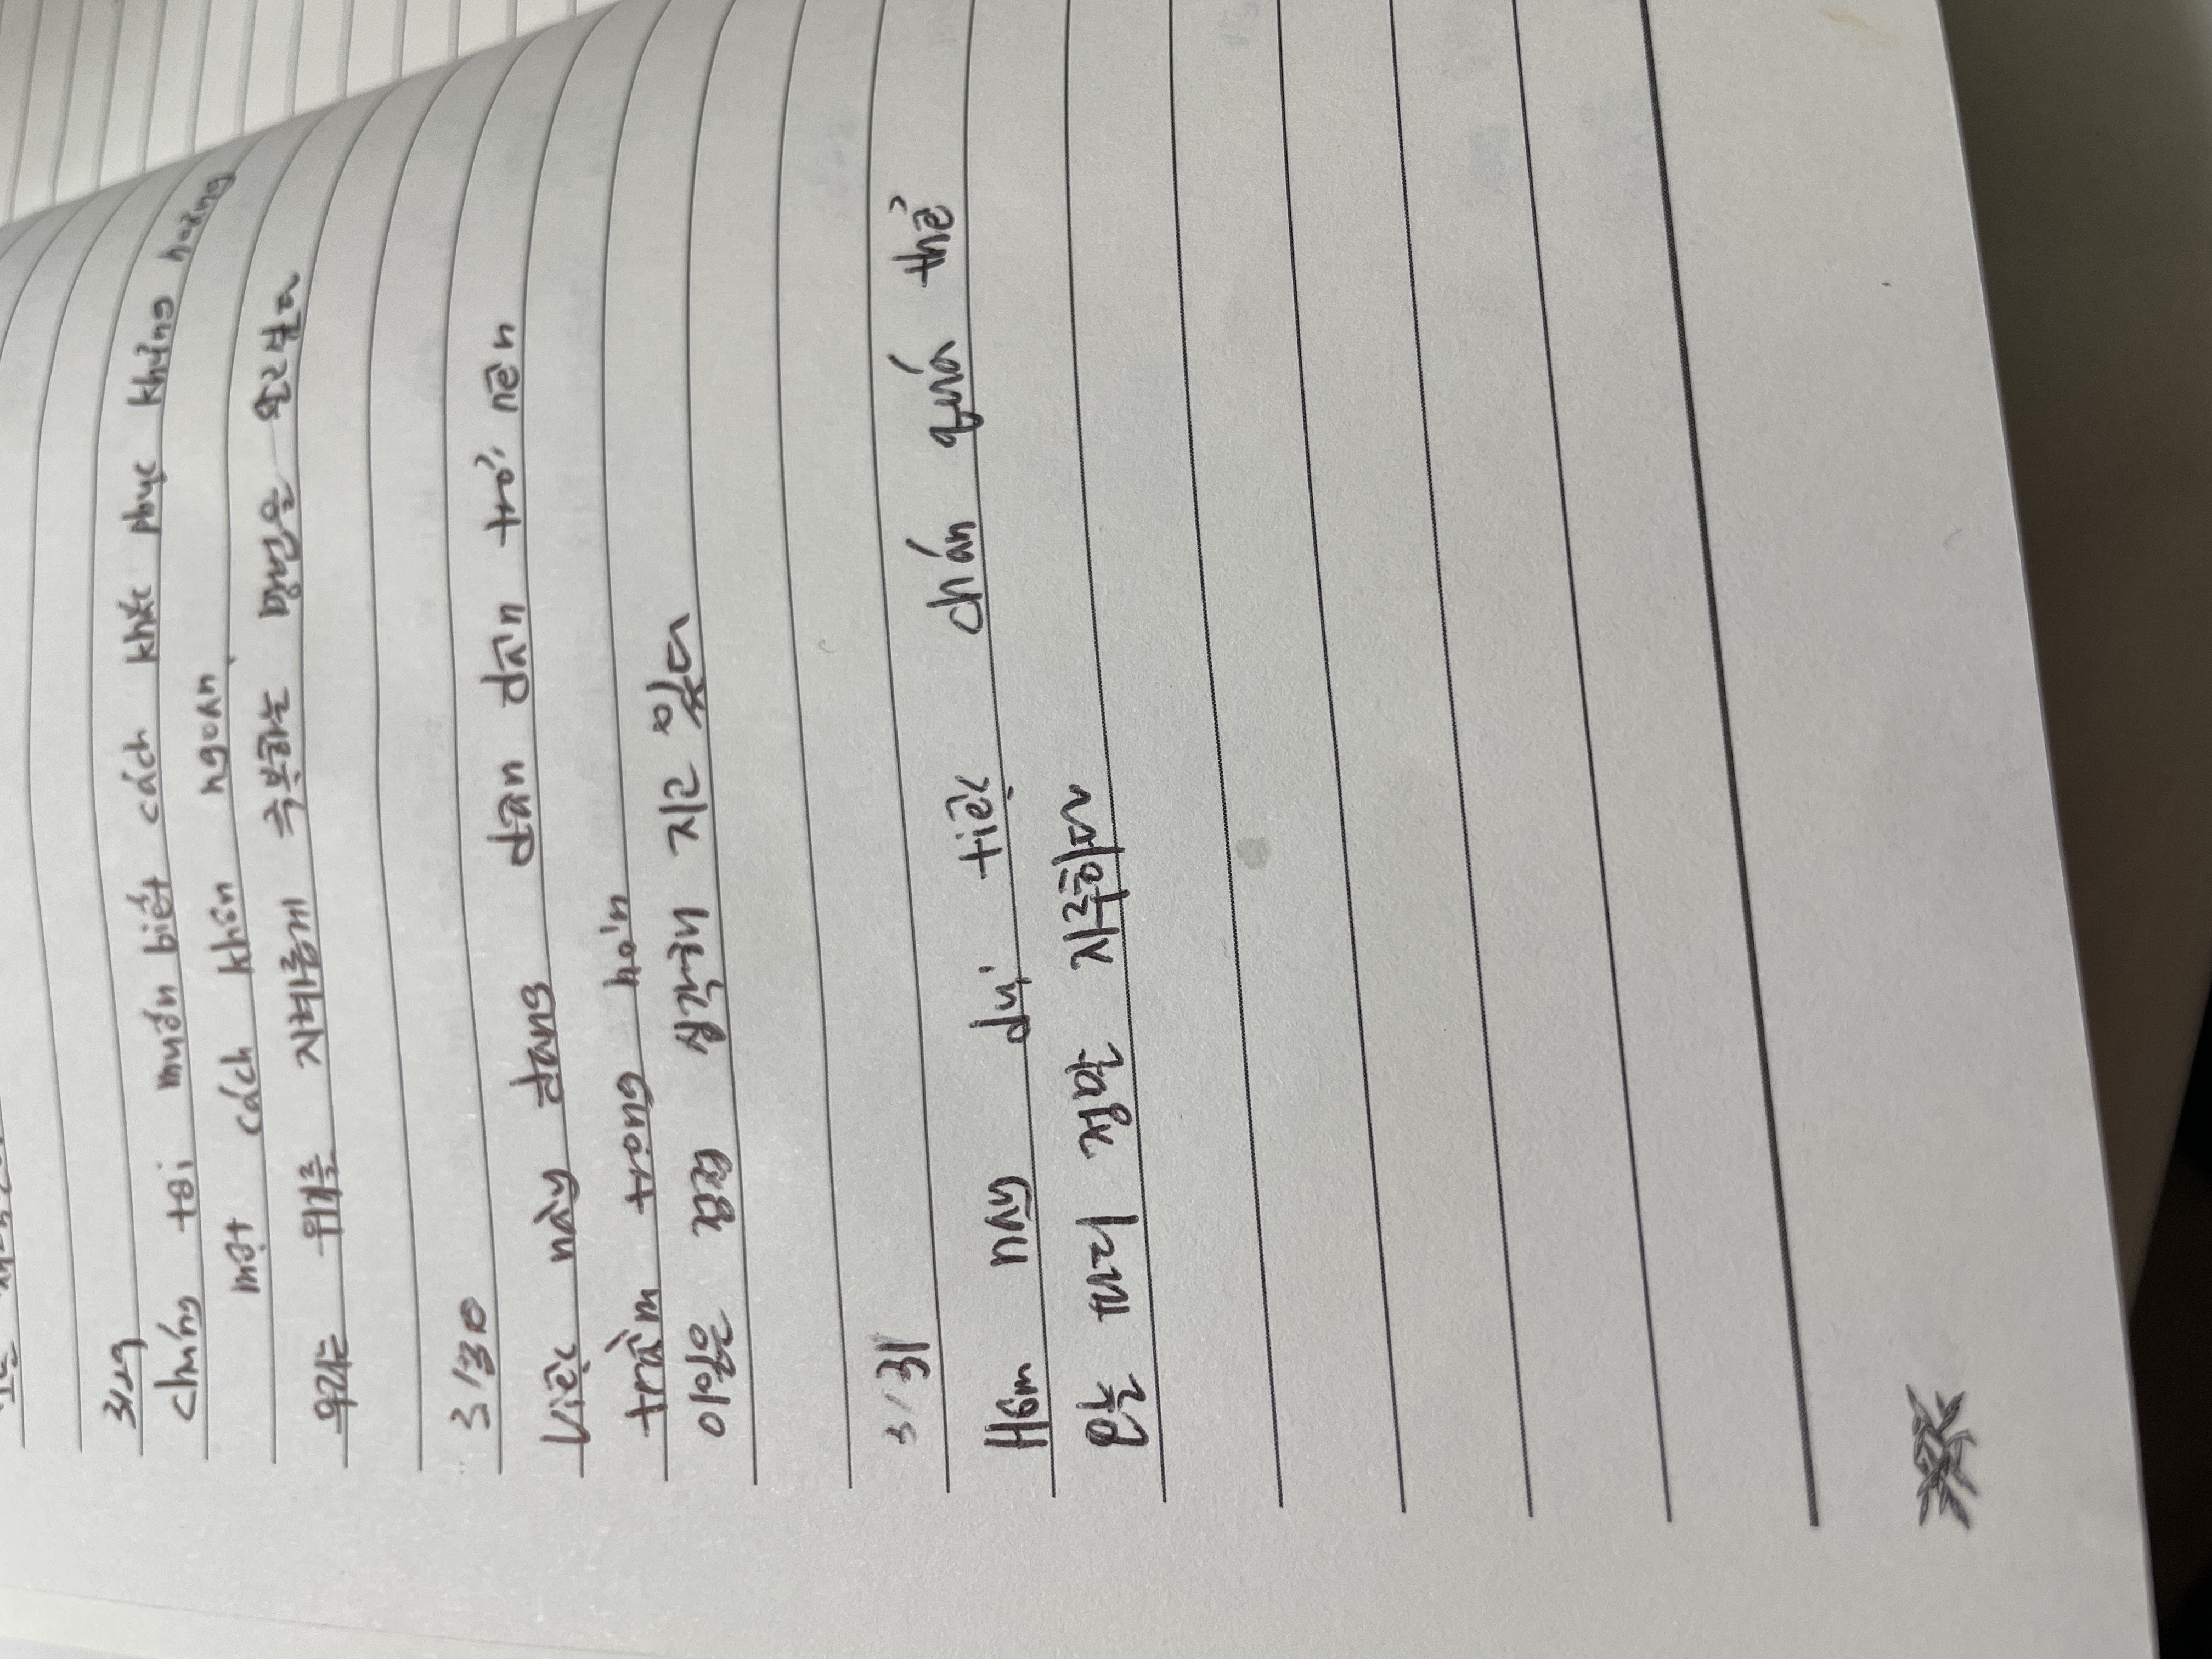 3/29
chúng tôi muốn biết cách khắc phục khủng hoảng
một cách khôn ngoan.
우리는 위기를 지혜롭게 극복하는 방법을 알고싶다
3/30
Việc này đang dần dần trở nên
trầm trọng hơn
이일은 점점 심각해 지고 있다
3/31
Hôm nay dự tiệc chán quá thể
오늘 파티 정말 지루하다